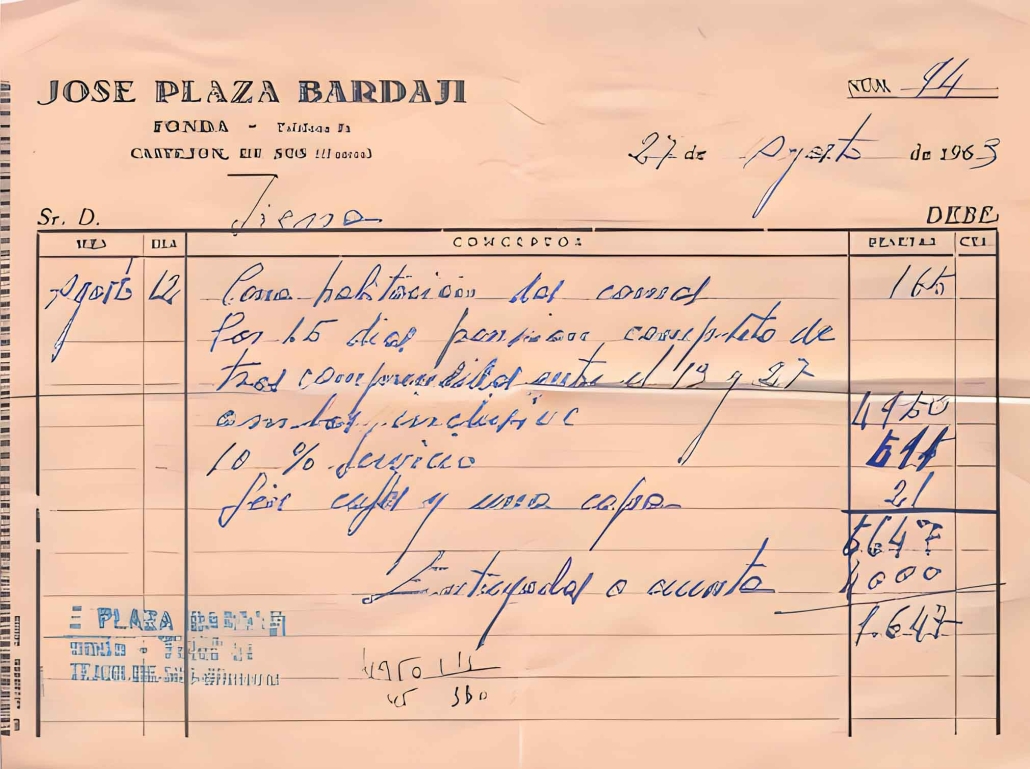 JOSE PLAZA BARDAJI
NÚM 94
FONDA -
27 de Agosto de 1963
Sr. D.
DEBE
MES DIA CONCEPTOS PESETAS CTS
Agosto 12 Cena habitación 165
Por 15 dias pension completa de
tres comprendidos entre el 13 y 27
ambos inclusive 4950
10 % servicio 511
Seis cafés y una copa 21
5647
Entregadas a cuenta 4000
1.647
PLAZA
4950
45